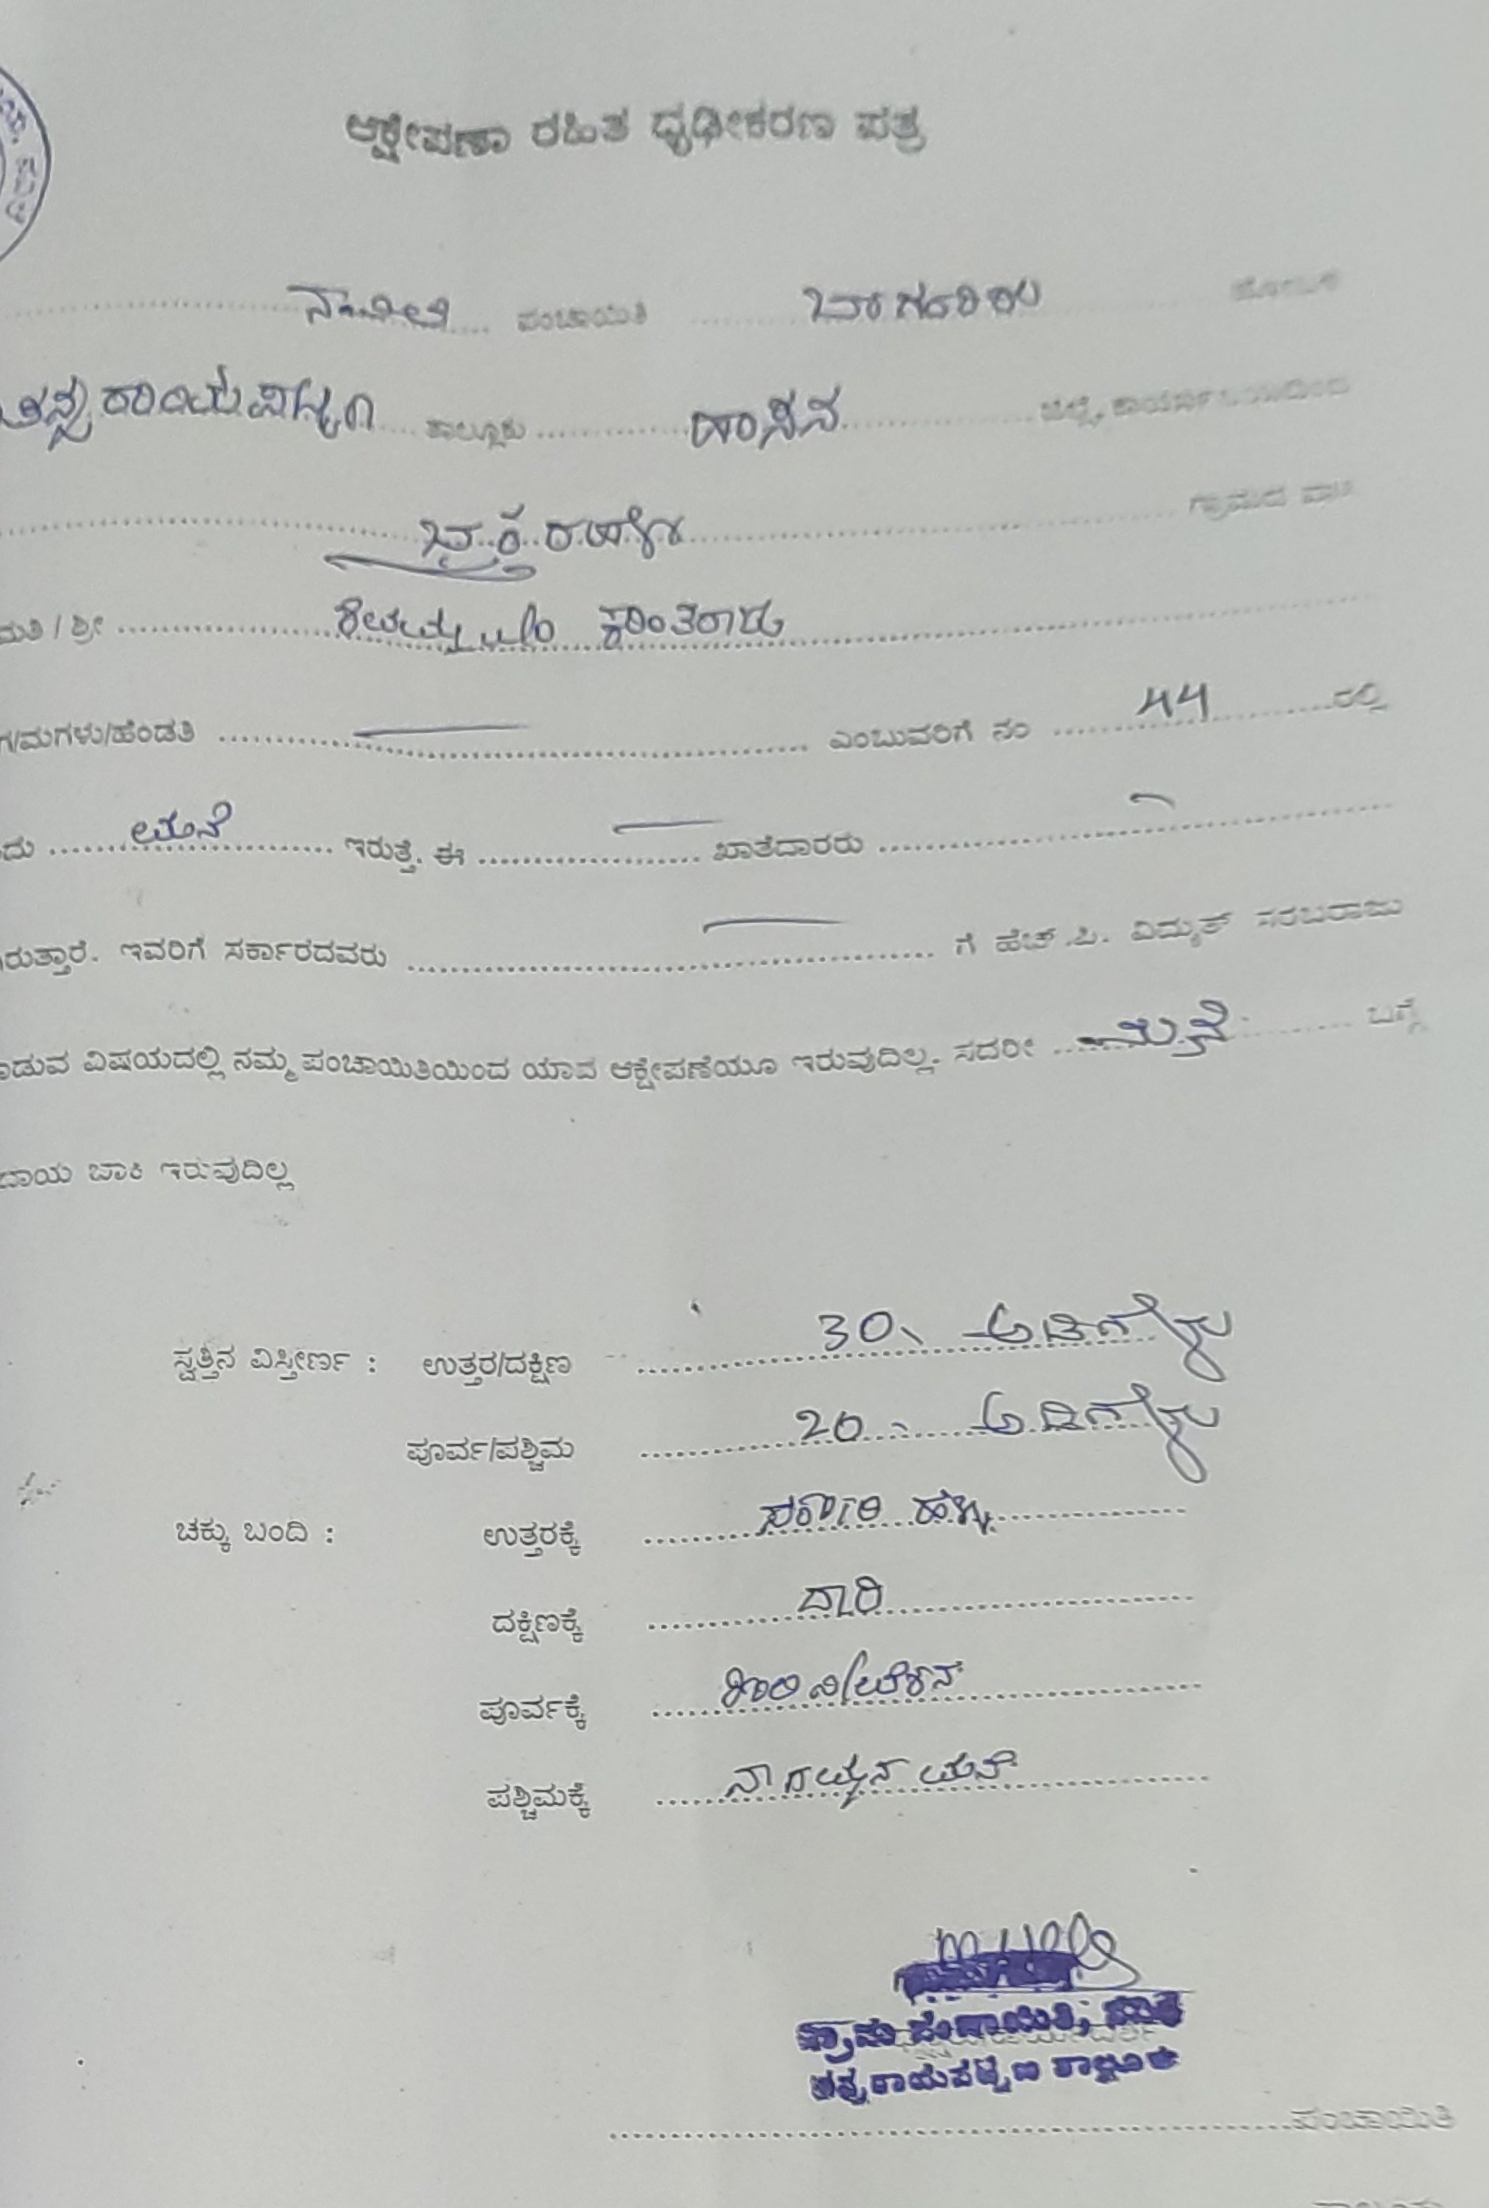 ಆಕ್ಷೇಪಣಾ ರಹಿತ ಧೃಢೀಕರಣ ಪತ್ರ
ನುವಿಲೆ ಪಂಚಾಯಿತಿ ಬಾಗೂರು ಹೋಬಳಿ
ತಾಲ್ಲೂಕು ಹಾಸನ ಜಿಲ್ಲೆ,
ಗ್ರಾಮದ ವಾಸಿ
ಮತಿ / ಶ್ರೀ ಕಾಂತರಾಜು
ಗ/ಮಗಳು/ಹೆಂಡತಿ ಎಂಬುವರಿಗೆ ನಂ 44 ರಲ್ಲಿ
ದು ಮನೆ ಇರುತ್ತೆ. ಈ ಖಾತೆದಾರರು
ರುತ್ತಾರೆ. ಇವರಿಗೆ ಸರ್ಕಾರದವರು ಗೆ ಹೆಚ್.ಪಿ. ವಿದ್ಯುತ್ ಸರಬರಾಜು
ಾಡುವ ವಿಷಯದಲ್ಲಿ ನಮ್ಮ ಪಂಚಾಯಿತಿಯಿಂದ ಯಾವ ಆಕ್ಷೇಪಣೆಯೂ ಇರುವುದಿಲ್ಲ. ಸದರೀ ಮನೆ ಬಗ್ಗೆ
ದಾಯ ಬಾಕಿ ಇರುವುದಿಲ್ಲ
ಸ್ವತ್ತಿನ ವಿಸ್ತೀರ್ಣ : ಉತ್ತರ/ದಕ್ಷಿಣ 30 ಅಡಿಗಳು
ಪೂರ್ವ/ಪಶ್ಚಿಮ 20 ಅಡಿಗಳು
ಚಕ್ಕು ಬಂದಿ : ಉತ್ತರಕ್ಕೆ ಸರ್ಕಾರಿ ಹಳ್ಳ
ದಕ್ಷಿಣಕ್ಕೆ ದಾರಿ
ಪೂರ್ವಕ್ಕೆ ಖಾಲಿ ನಿವೇಶನ
ಪಶ್ಚಿಮಕ್ಕೆ ನಾಗಮ್ಮನ ಮನೆ
ಗ್ರಾಮ ಪಂಚಾಯಿತಿ,
ಚನ್ನರಾಯಪಟ್ಟಣ ತಾಲ್ಲೂಕು
ಪಂಚಾಯಿತಿ